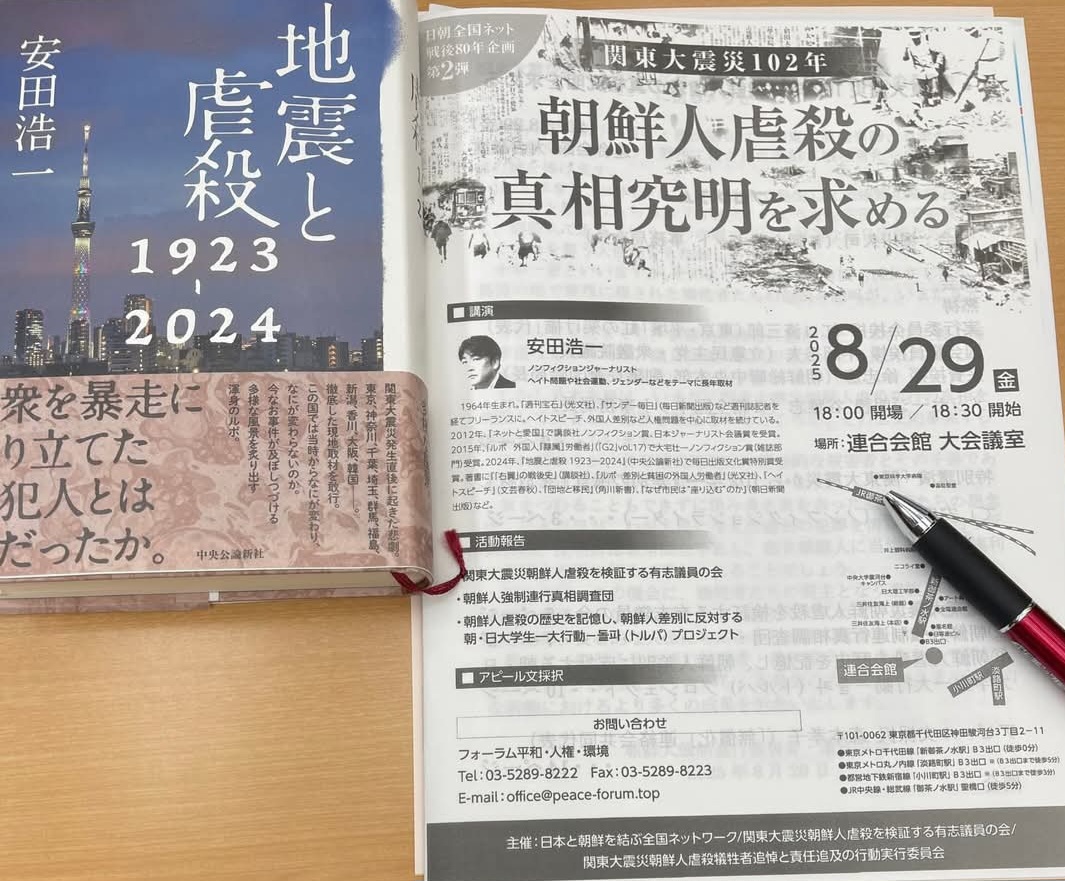 安田浩一
地震と
虐殺
1923
-
2024
衆を暴走に
り立てた
犯人とは
だったか。
関東大震災発生直後に起きた悲劇。
東京、神奈川、千葉、埼玉、群馬、福島、
新潟、香川、大阪、韓国――。
徹底した現地取材を敢行。
この国では当時からなにが変わり、
なにが変わらないのか。
今なお事件が及ぼしつづける
多様な風景を炙り出す
渾身のルポ。
中央公論新社
日朝全国ネット
戦後80年企画
第2弾
関東大震災102年
朝鮮人虐殺の
真相究明を求める
■ 講演
安田浩一
ノンフィクションジャーナリスト
ヘイト問題や社会運動、ジェンダーなどをテーマに長年取材
1964年生まれ。「週刊宝石」(光文社)、「サンデー毎日」(毎日新聞出版)など週刊誌記者を
経てフリーランスに。ヘイトスピーチ、外国人差別など人権問題を中心に取材を続けている。
2012年、「ネットと愛国」で講談社ノンフィクション賞、日本ジャーナリスト会議賞を受賞。
2015年、「ルポ 外国人『隷属』労働者」(「G2」vol17)で大宅壮一ノンフィクション賞(雑誌部
門)受賞。2024年、「地震と虐殺 1923―2024」(中央公論新社)で毎日出版文化賞特別賞受
賞。著書に「『右翼』の戦後史」(講談社)、「ルポ 差別と貧困の外国人労働者」(光文社)、「ヘイ
トスピーチ」(文芸春秋)、「団地と移民」(角川新書)、「なぜ市民は"座り込む"のか」(朝日新聞
出版)など。
2025 8/29 金
18:00 開場 / 18:30 開始
場所:連合会館 大会議室
■ 活動報告
関東大震災朝鮮人虐殺を検証する有志議員の会
・朝鮮人強制連行真相調査団
・朝鮮人虐殺の歴史を記憶し、朝鮮人差別に反対する
朝・日大学生一大行動ー돌파(トルパ)プロジェクト
■ アピール文採択
お問い合わせ
フォーラム平和・人権・環境
Tel:03-5289-8222 Fax:03-5289-8223
E-mail:office@peace-forum.top
●東京医科歯科大学病院
●湯島聖堂
JR御茶
井上眼科病院
ニコライ堂●
中央大学駿河台●
キャンパス
日大理工学部●
三井住友海上(新館)●
三井住友海上(本館)●
●全電通会館
●B3出口
連合会館
小川町駅
淡路町駅
〒101-0062 東京都千代田区神田駿河台3丁目2-11
●東京メトロ千代田線「新御茶ノ水駅」B3出口(徒歩0分)
●東京メトロ丸ノ内線「淡路町駅」B3出口 ※(B3出口まで徒歩5分)
●都営地下鉄新宿線「小川町駅」B3出口 ※(B3出口まで徒歩3分)
●JR中央線・総武線「御茶ノ水駅」聖橋口(徒歩5分)
主催:日本と朝鮮を結ぶ全国ネットワーク/関東大震災朝鮮人虐殺を検証する有志議員の会/
関東大震災朝鮮人虐殺犠牲者追悼と責任追及の行動実行委員会